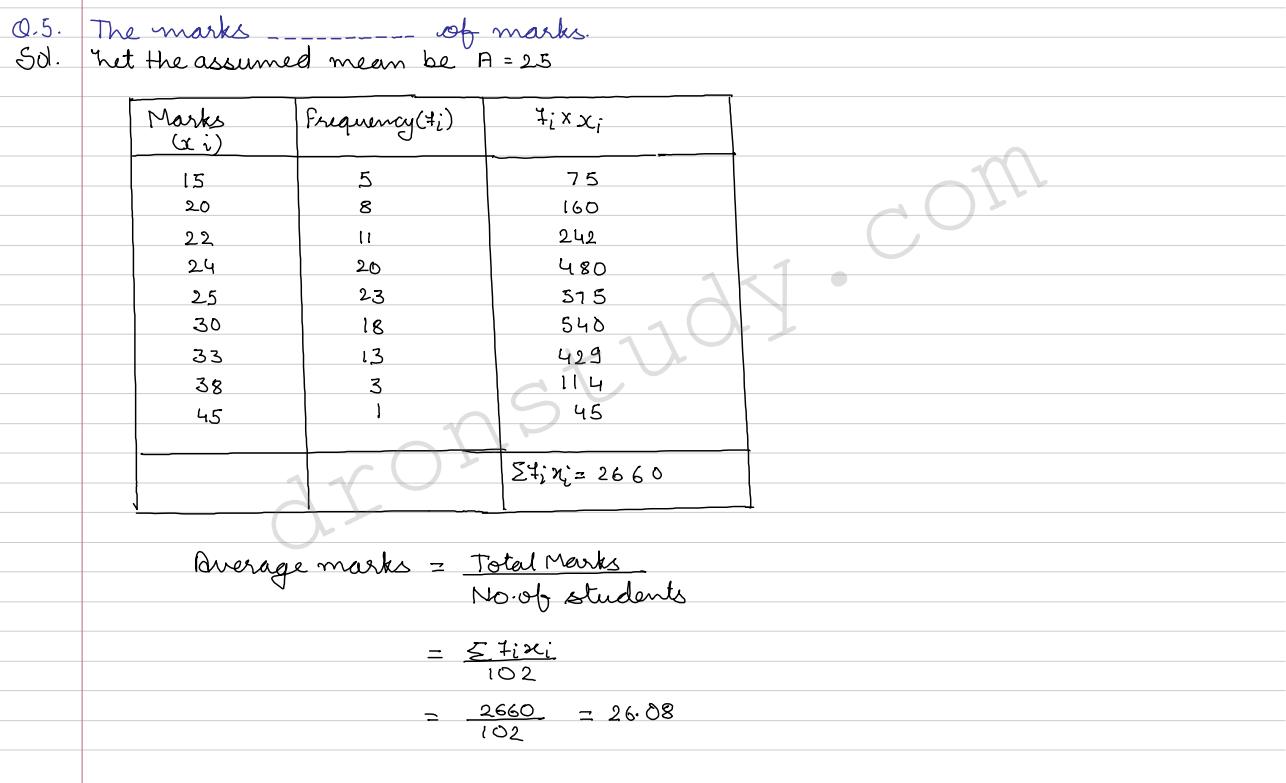 Q.5. The marks __________ of marks.
Sol. Let the assumed mean be A = 25
Marks (xi) Frequency(fi) fi × xi
15 5 75
20 8 160
22 11 242
24 20 480
25 23 575
30 18 540
33 13 429
38 3 114
45 1 45
Σfixi = 2660
Average marks = Total Marks / No. of students
= Σfixi / 102
= 2660 / 102 = 26.08
dronstudy.com